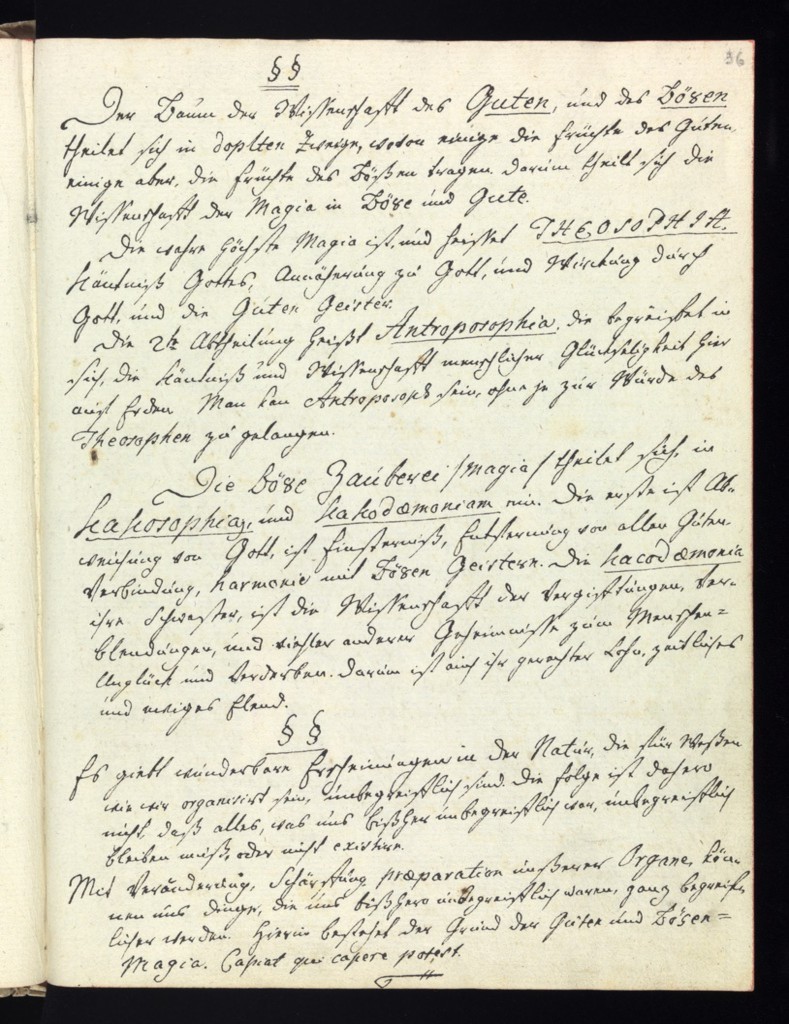 36
§§
Der Baum der Wissenschafft des Guten, und des Bösen
theilet sich in doplten Zweige, wovon einige die früchte des Guten,
einige aber, die früchte des Bösßen tragen. darum theilt sich die
Wissenschafft der Magia in Böse und Gute.
Die wahre höchste Magia ist, und heisset THEOSOPHIA.
käntniß Gottes, Annäherung zu Gott, und Würckung durch
Gott, und die Guten Geister.
Die 2te Abtheilung heißt Antroposophia, die begreiffet in
sich, die käntniß und Wissenschafft menschlicher Glückseligkeit hier
auf Erden. Man kan Antroposoph sein, ohne je zur Würde des
Theosophen zu gelangen.
Die Böse Zauberei /Magia/ theilet sich, in
Kakosophiam, und KaKodæmoniam ein. Die erste ist Ab-
weichung von Gott, ist Finsterniß, Entfernung von allen Guten
Verbindung, harmonie mit Bösen Geistern. Die Kacodæmonia
ihre Schwester, ist die Wissenschafft der Vergifftungen, Ver-
blendungen, und vieler anderer Geheimnisse zum Menschen=
Unglück und Verderben. darum ist auch ihr gerechter Lohn, zeitliches
und ewiges Elend.
§§
Es giebt wunderbare Erscheinungen in der Natur, die für Weßen
wie wir organisirt sein, unbegreifflich sind. Die folge ist dahero
nicht, daß alles, was uns bißher unbegreifflich war, unbegreifflich
bleiben muß, oder nicht existire.
Mit Veränderung, Schärffung præparation unßerer Organe, kön-
nen uns dinge, die uns bißhero unbegreifflich waren, ganz begreif-
licher werden. Hierin bestehet der Grund der Guten und Bösen=
Magia. Capiat qui capere potest.